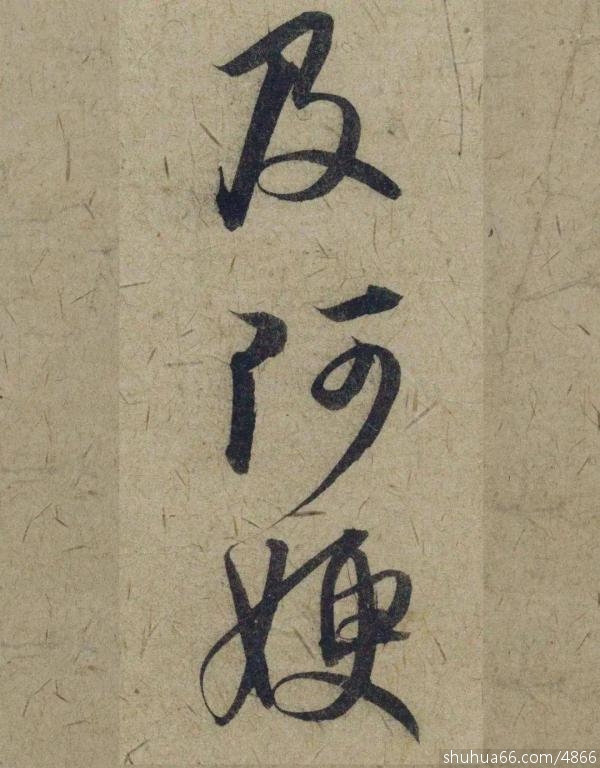 及阿㛐
shuhua66.com/4866